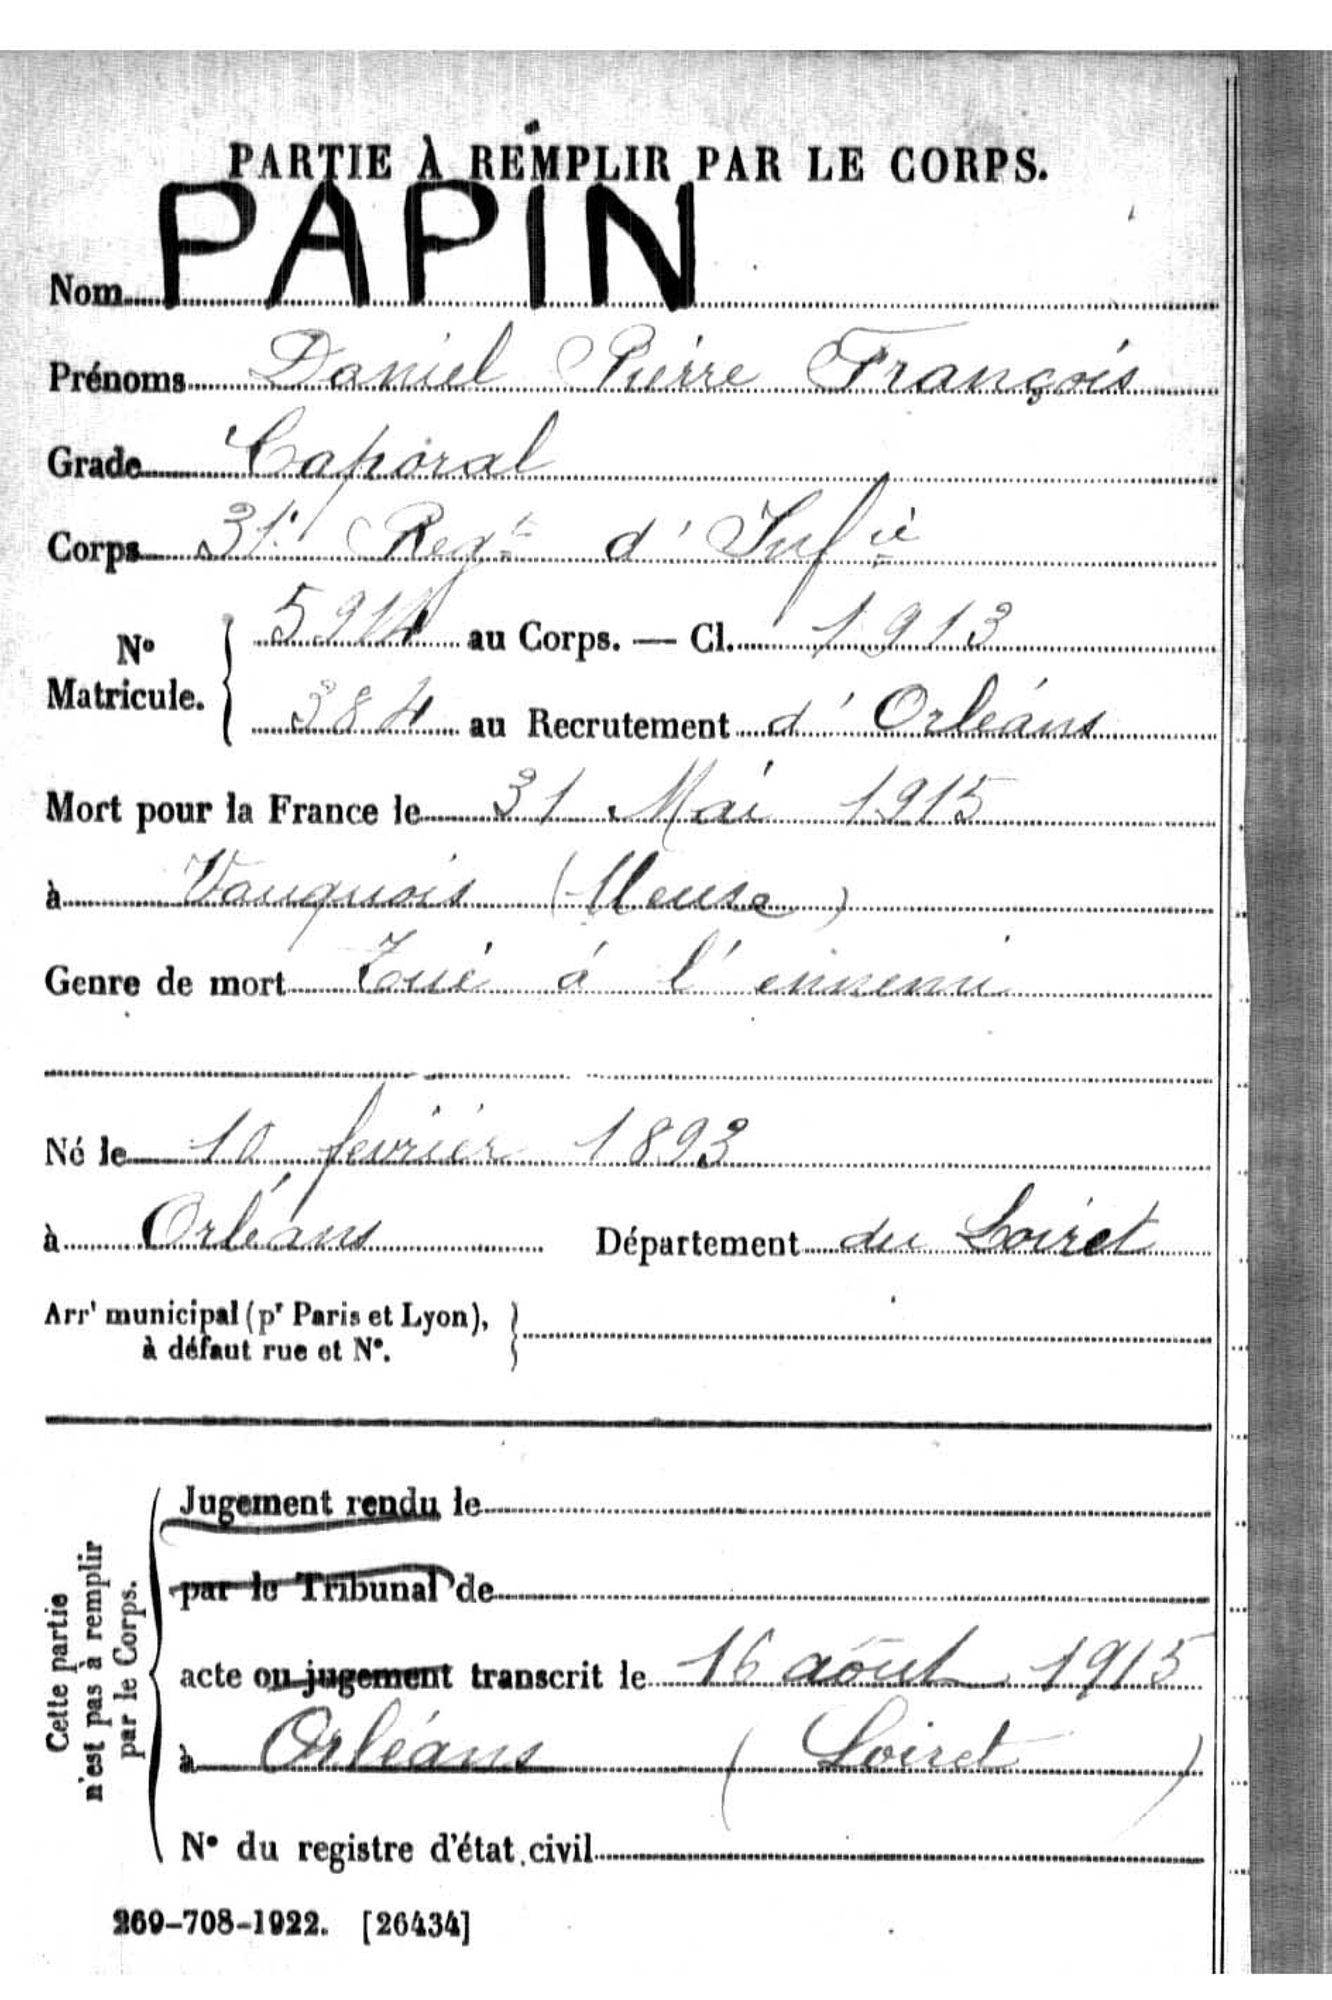 PARTIE À REMPLIR PAR LE CORPS.
Nom PAPIN
Prénoms Daniel Pierre François
Grade Caporal
Corps 31e Regt d'Infie
No Matricule. 5914 au Corps. — Cl. 1913
384 au Recrutement d'Orléans
Mort pour la France le 31 Mai 1915
à Vauquois (Meuse)
Genre de mort Tué à l'ennemi
Né le 10 février 1893
à Orléans Département du Loiret
Arrt municipal (pr Paris et Lyon),
à défaut rue et No.
Cette partie
n'est pas à remplir
par le Corps.
Jugement rendu le
par le Tribunal de
acte ou jugement transcrit le 16 août 1915
à Orléans (Loiret)
No du registre d'état civil
269-708-1922. [26434]